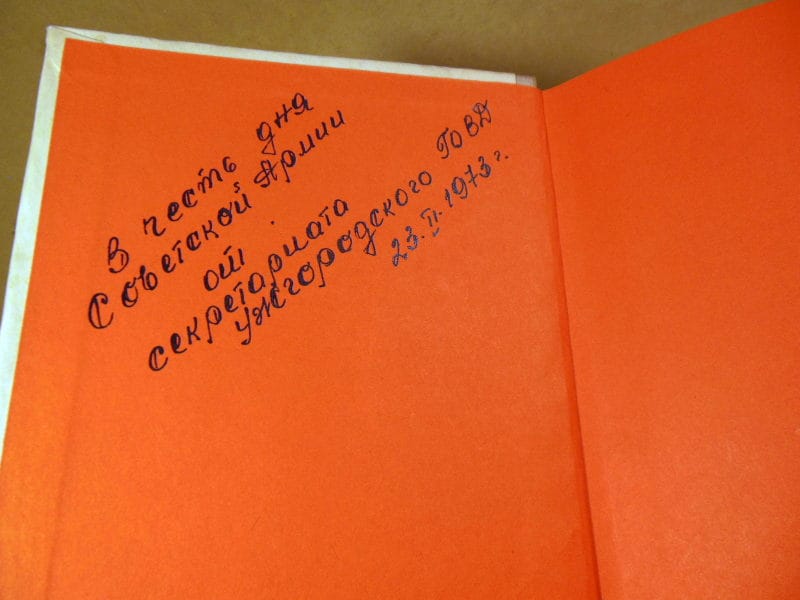 В честь дня
Советской Армии
от
секретариата
Ужгородского ГОВД
23.II.1973г.